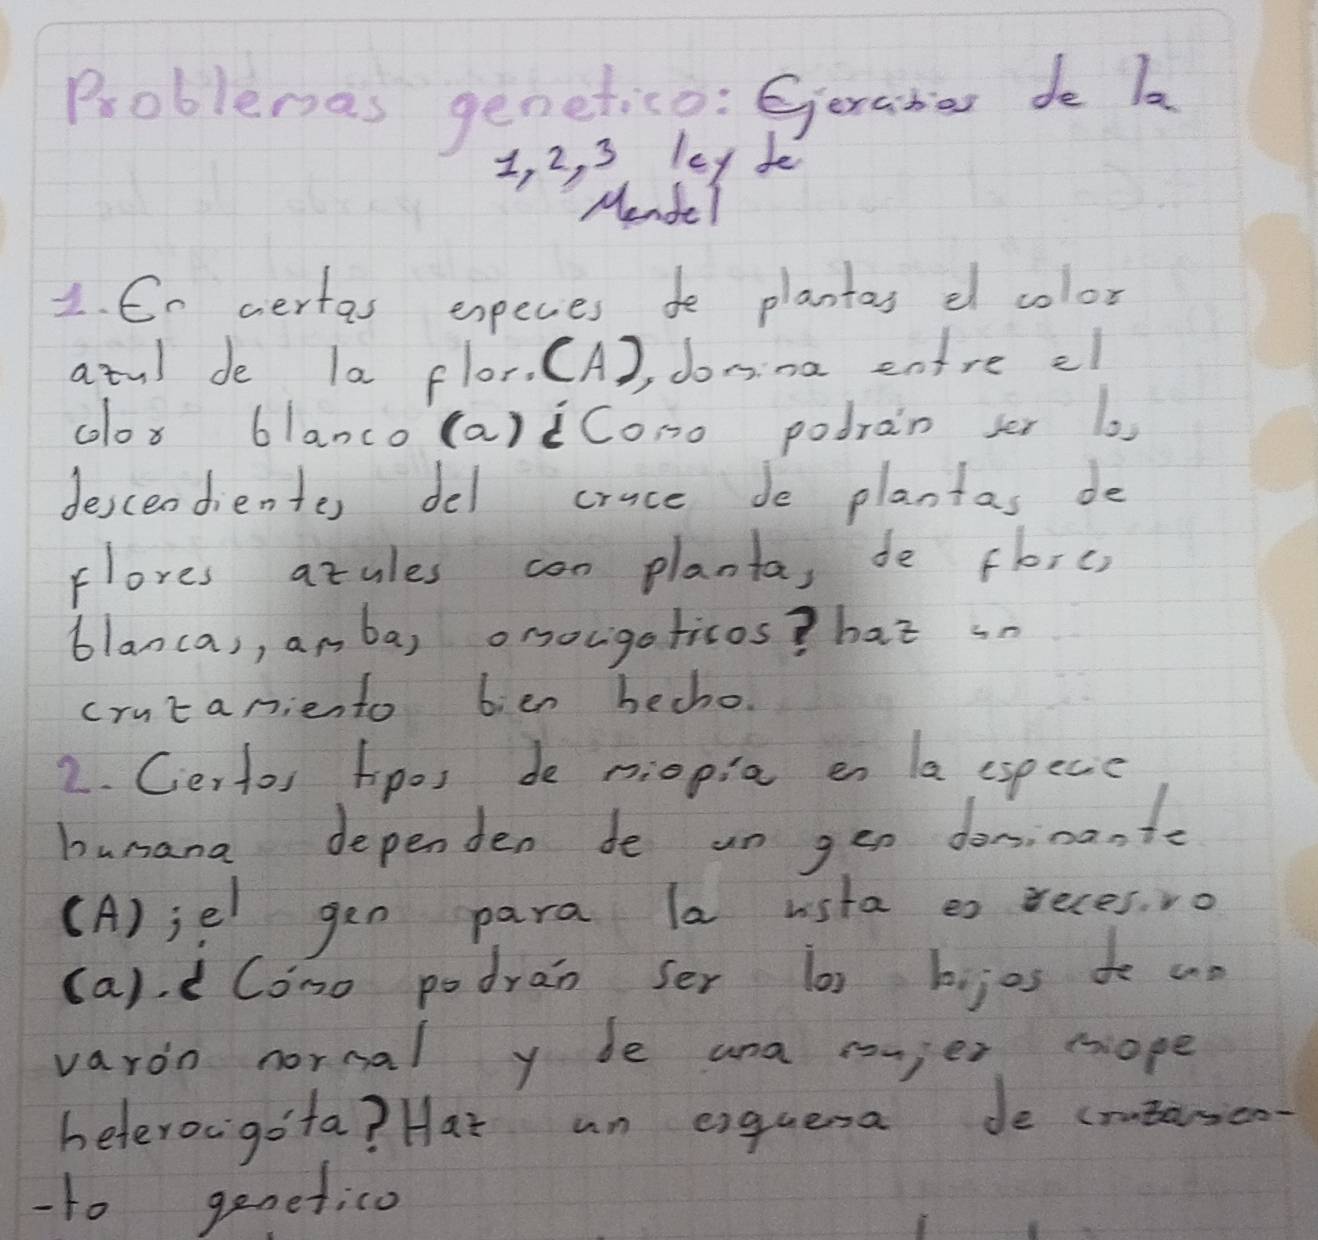 Problemas genetico: Ejercicios de la
1, 2, 3 ley de
Mendel
1. En ciertas especies de plantas el color
azul de la flor. (A), domina entre el
color blanco (a) ¿Como podrán ser los
descendientes del cruce de plantas de
flores azules con plantas de flores
blancas, ambas omocigoticos? haz un
cruzamiento bien hecho.
2. Ciertos tipos de miopía en la especie
humana dependen de un gen dominante
(A); el gen para la vista es recesivo
(a). ¿Cómo podrán ser los hijos de un
varón normal y de una mujer miope
heterocigóta? Haz un esquema de cruzamien-
-to genetico